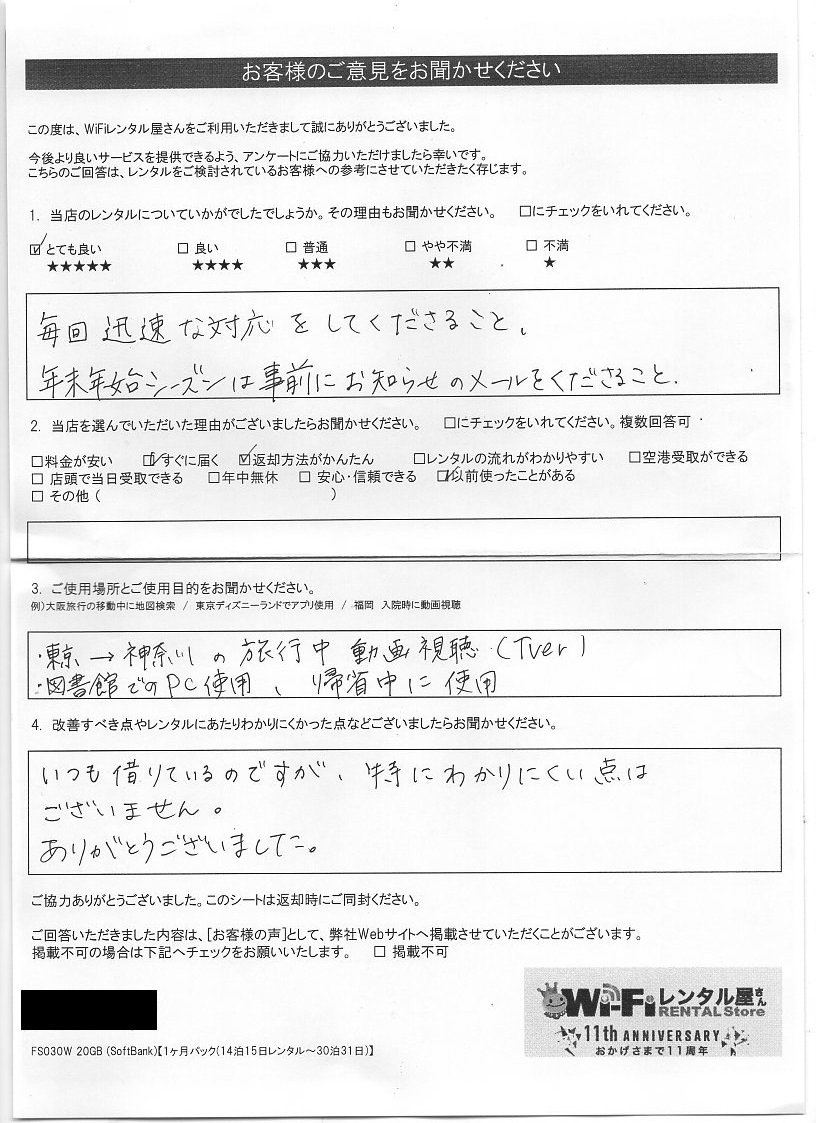 お客様のご意見をお聞かせください
この度は、WiFiレンタル屋さんをご利用いただきまして誠にありがとうございました。
今後より良いサービスを提供できるよう、アンケートにご協力いただけましたら幸いです。
こちらのご回答は、レンタルをご検討されているお客様への参考にさせていただきたく存じます。
1. 当店のレンタルについていかがでしたでしょうか。その理由もお聞かせください。 □にチェックをいれてください。
☑ とても良い □ 良い □ 普通 □ やや不満 □ 不満
★★★★★ ★★★★ ★★★ ★★ ★
毎回 迅速な対応をしてくださること、
年末年始シーズンは事前にお知らせのメールをくださること.
2. 当店を選んでいただいた理由がございましたらお聞かせください。 □にチェックをいれてください。複数回答可
□料金が安い ☑すぐに届く ☑返却方法がかんたん □レンタルの流れがわかりやすい □空港受取ができる
□ 店頭で当日受取できる □年中無休 □ 安心・信頼できる ☑以前使ったことがある
□ その他 ( )
3. ご使用場所とご使用目的をお聞かせください。
例)大阪旅行の移動中に地図検索 / 東京ディズニーランドでアプリ使用 / 福岡 入院時に動画視聴
・東京→神奈川の旅行中 動画視聴 (Tver)
・図書館でのPC使用、帰省中に使用
4. 改善すべき点やレンタルにあたりわかりにくかった点などございましたらお聞かせください。
いつも借りているのですが、特にわかりにくい点は
ございません。
ありがとうございました。
ご協力ありがとうございました。このシートは返却時にご同封ください。
ご回答いただきました内容は、[お客様の声]として、弊社Webサイトへ掲載させていただくことがございます。
掲載不可の場合は下記へチェックをお願いいたします。 □ 掲載不可
Wi-Fiレンタル屋さん
RENTAL Store
11th ANNIVERSARY
おかげさまで11周年
FS030W 20GB (SoftBank)【1ヶ月パック(14泊15日レンタル～30泊31日)】